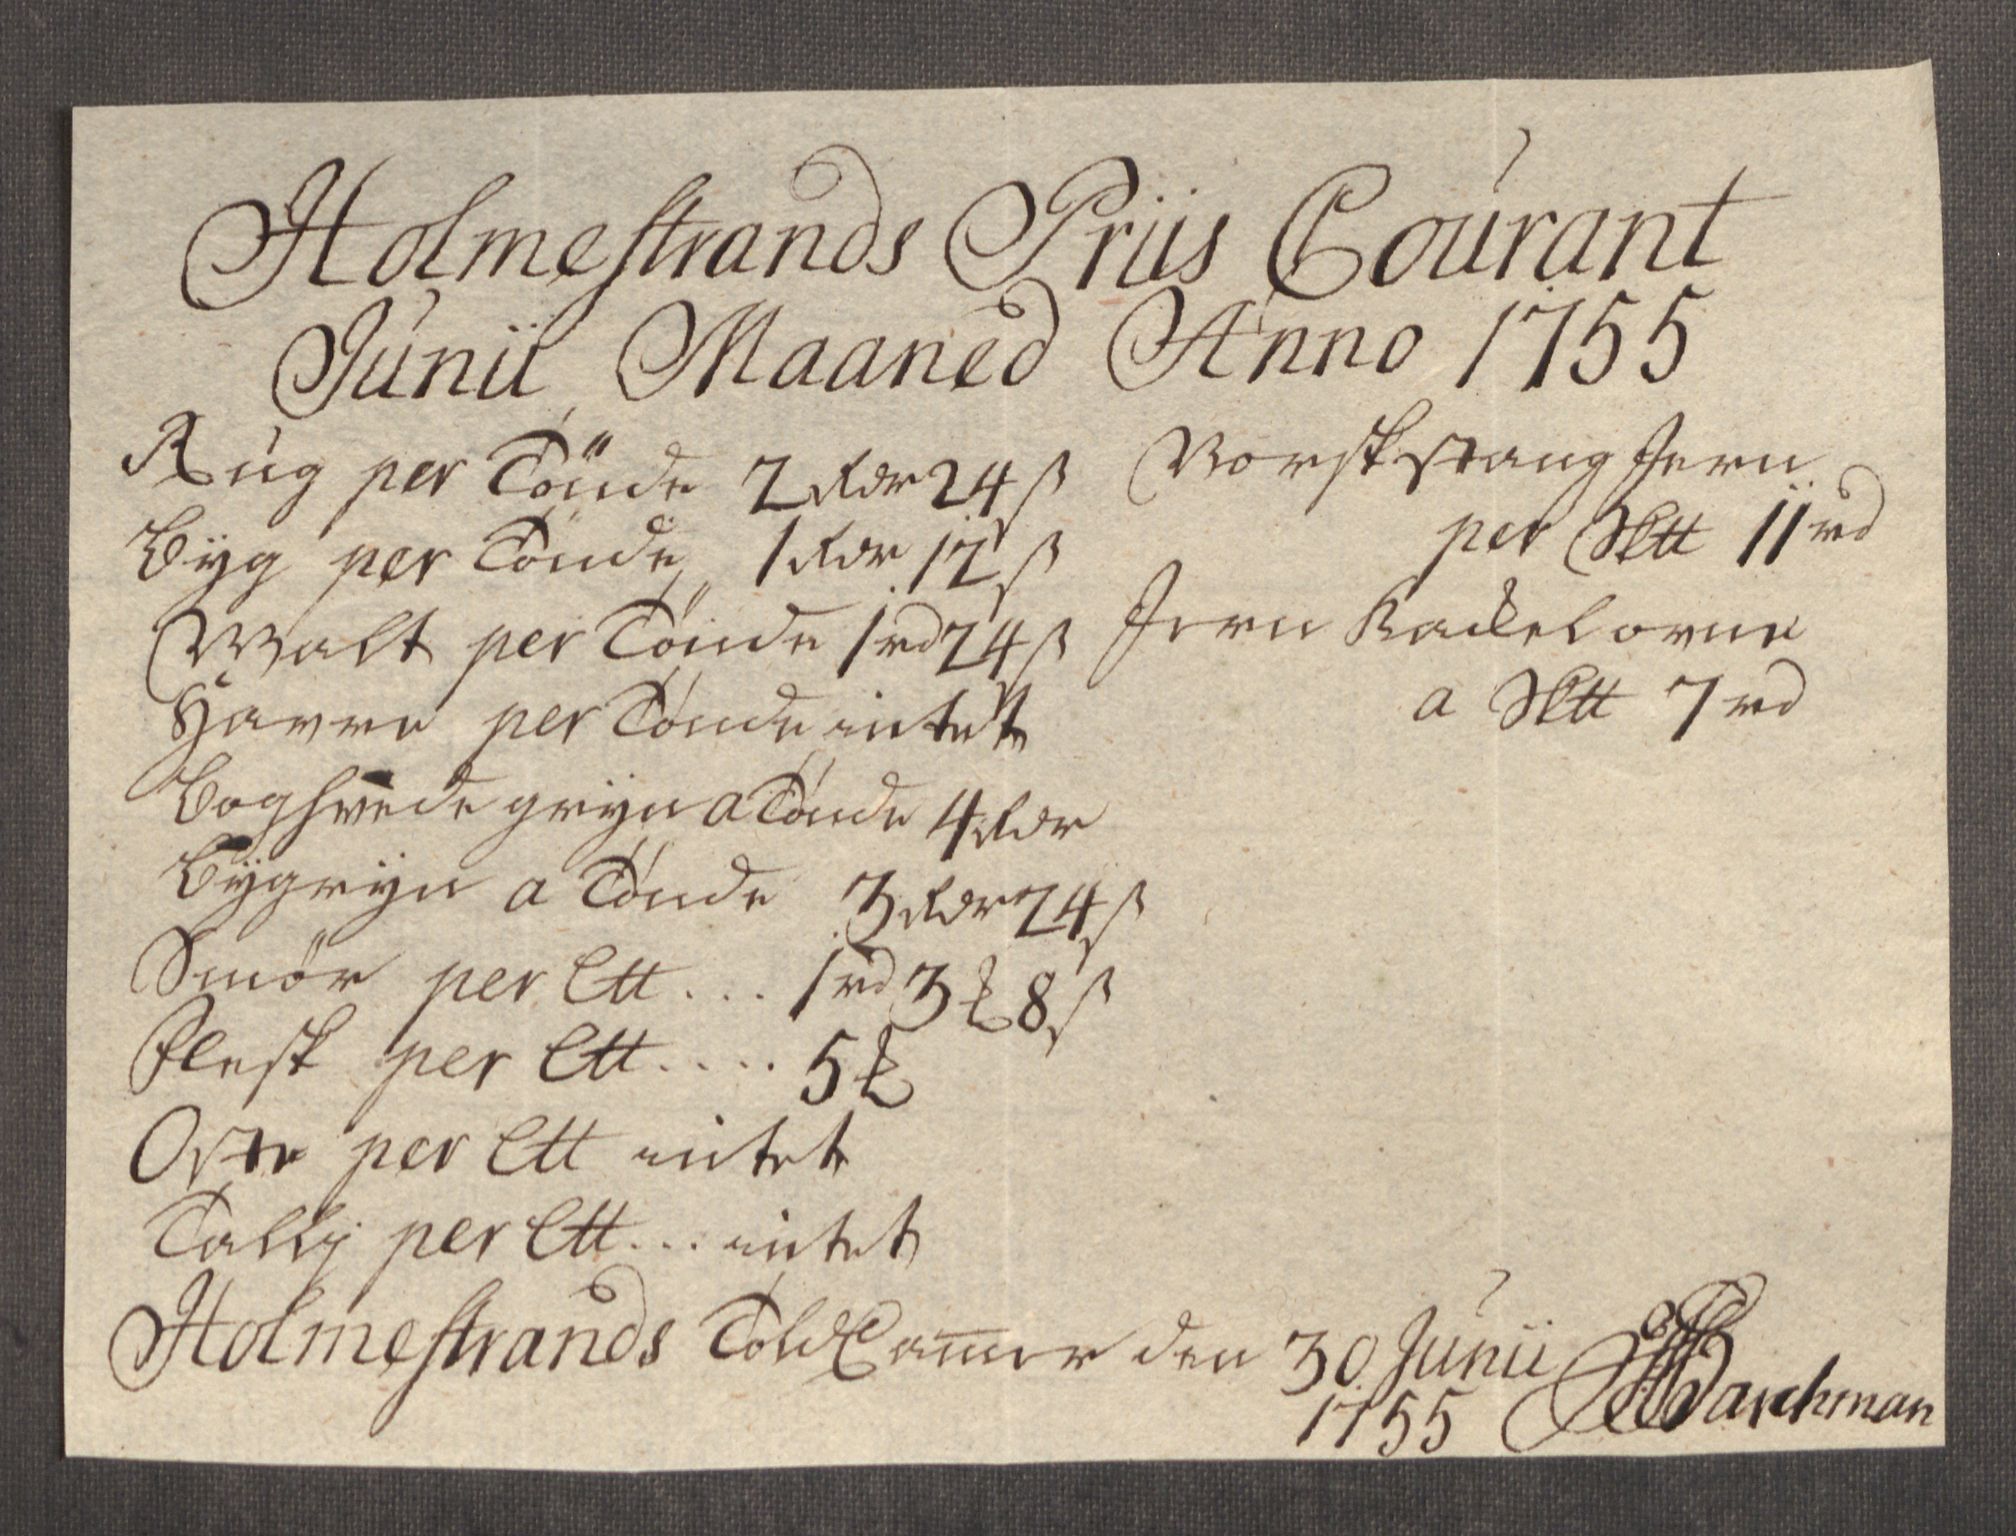 Holmestrands Priis Courant
Junii Maaned Anno 1755
Rug per Tönde 2 Rdr 24 ß
Byg per Tönde 1 Rdr 12 ß
Malt per Tönde 1 rd 24 ß
Havre per Tönde intet
Boghvede gryn a Tönde 4 Rdr
Byggryn a Tönde 3 Rdr 24 ß
Smör per Ltt ... 1 rd 3 ₰ 8 ß
Flesk per Ltt .... 5 ₰
Oste per Ltt intet
Tallig per Ltt ... intet
Norsk Stang Jern
per Sktt 11 rd
Jern Kackelovne
a Sktt 7 rd
Holmestrands Told Camer den 30 Junii
1755 Barchman